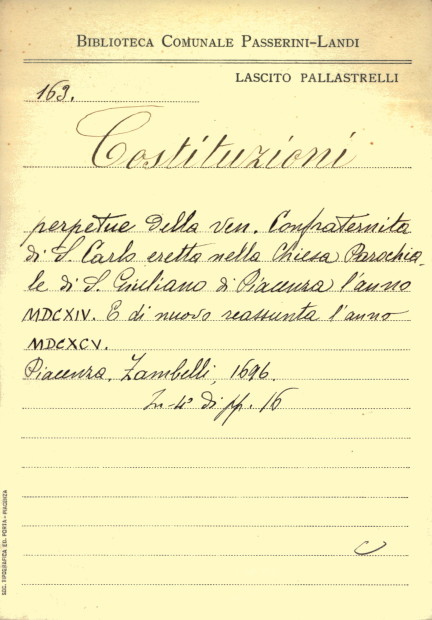 BIBLIOTECA COMUNALE PASSERINI-LANDI
LASCITO PALLASTRELLI
169.
Costituzioni
perpetue della ven. Confraternita
di S. Carlo eretta nella Chiesa Parochia-
le di S. Giuliano di Piacenza l'anno
MDCXIV. E di nuovo reassunta l'anno
MDCXCV.
Piacenza, Zambelli, 1696.
In-4° di pp. 16
C
SOC. TIPOGRAFICA ED. PORTA - PIACENZA